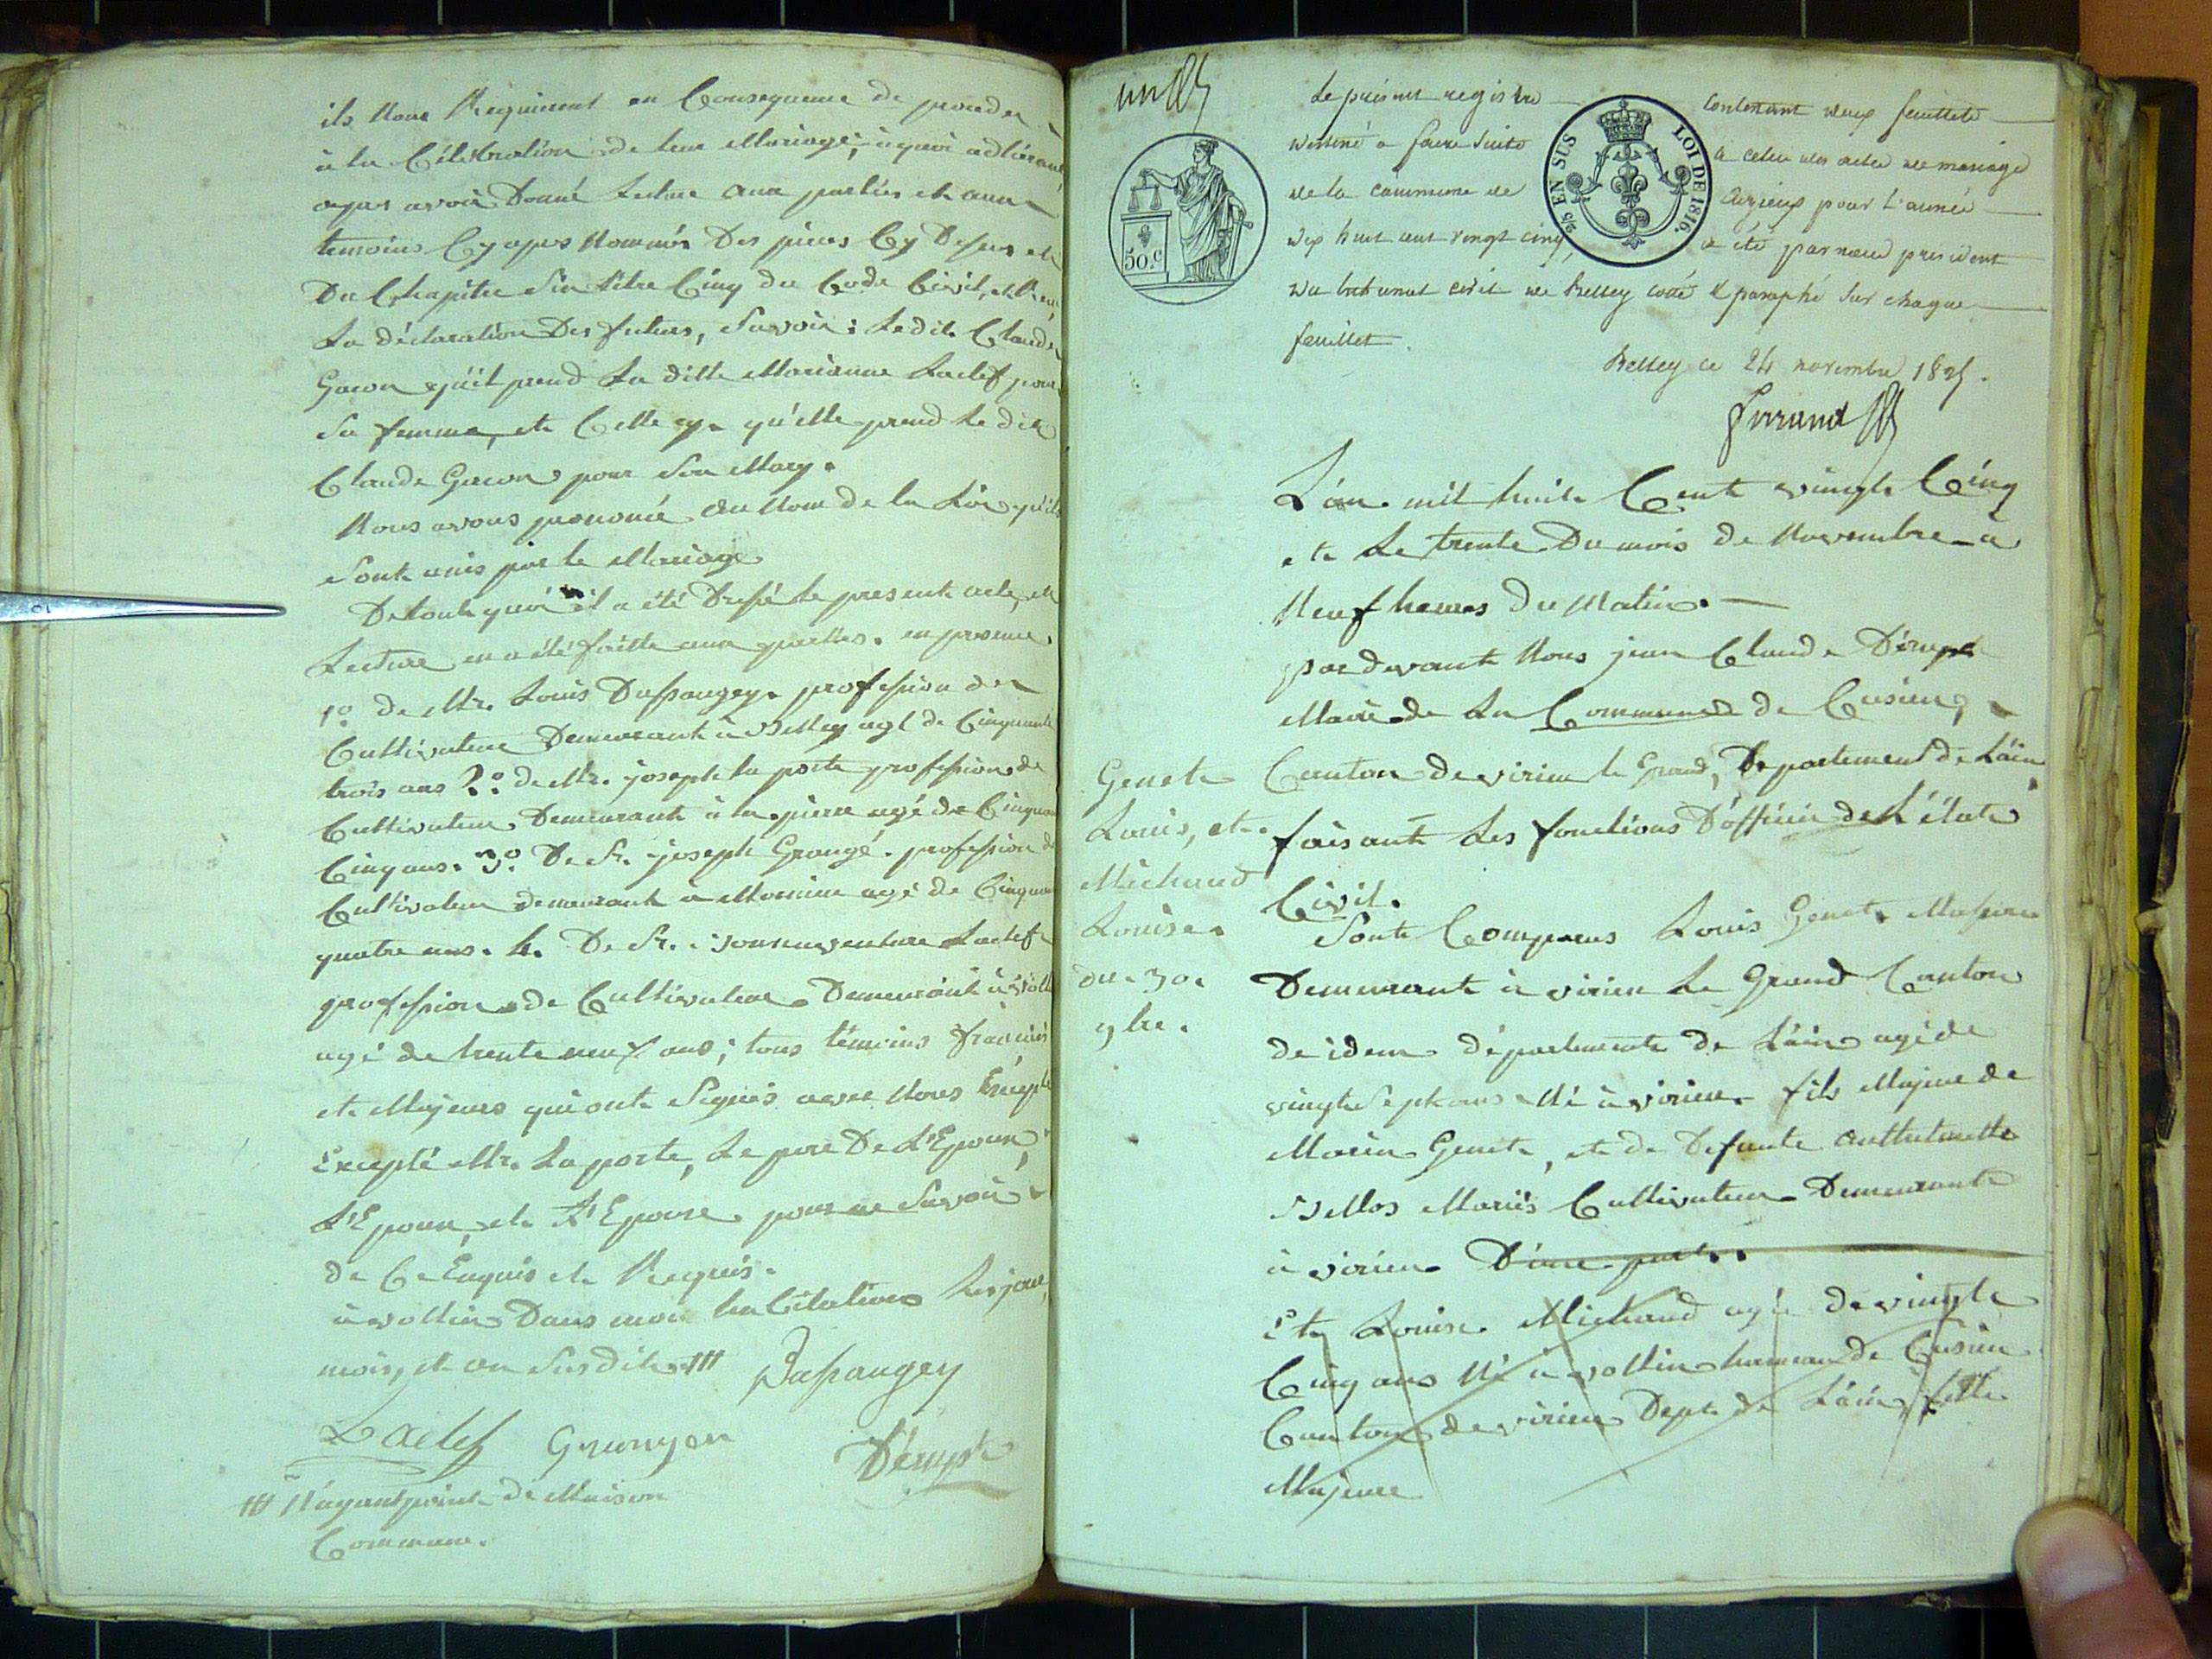 ils nous Requierent en Consequence de proceder
à la Célébration de leur Mariage, à quoi adhérant,
apres avoir Donné Lecture aux parties et aux
temoins Cy apres Nommés Des pieces Cy Dessus et
Du Chapitre Six titre Cinq du Code Civil, et Reçu
La déclaration Des futurs, Savoir: Ledit Claude
Gacon qu'il prend La ditte Marianne Laclef pour
Sa femme, et Celle cy qu'elle prend Le dit
Claude Gacon pour Son Mary.
Nous avons prononcé au Nom de la Loi qu'ils
Sont unis par le Mariage
De tout quoi il a été Dressé le present acte, et
Lecture en a été faitte aux parties. en presence
1o. de Mr. Louis Dassaugey profession de
Cultivateur Demeurant à Belley agé de Cinquante
trois ans 2o. de Mr. joseph la porte profession de
Cultivateur Demeurant à la pierre agé de Cinquante
Cinq ans. 3o. De Sr. joseph Grangé profession de
Cultivateur demeurant à agé de Cinquante
quatre ans. 4. De Sr. Bonnaventure Laclef
profession de Cultivateur Demeurant à
agé de trente neuf ans; tous témoins français
et Majeurs qui ont Signés avec Nous Excepté
Excepté Mr. La porte, Le pere De L'Epoux,
L'Epoux, et L'Epouse pour ne Savoir
de Ce Enquis et Requis.
à vollin Dans mon habitation Les jour,
mois, et an Susdits ##
Dassaugey
Laclef Grangen Dérupt
## N'ayant point de Maison
Commune.
un
50.c
2/5 EN SUS LOI DE 1816.
Le présent registre contenant deux feuillets
destiné a faire suite a celui des actes de mariage
de la commune de Cuzieux pour l'année
dix huit cent vingt cinq, a été par nous president
du tribunal civil de Belley coté & paraphé sur chaque
feuillet.
Belley ce 24 novembre 1825.
Ferrand
L'an mil huit Cent vingt Cinq
et Le trente Du mois de Novembre à
Neuf heures Du Matin.
par devant Nous jean Claude Dérupt
Maire de La Commune de Cusieu,
Canton de virieu le Grand, Departement de L'ain
faisant Les fonctions D'officier de L'état
Civil.
Genet
Louis, et
Michaud
Louise.
du 30.
9bre.
Sont Comparus Louis Genet
Demeurant à virieu Le Grand Canton
de idem département de L'ain agé de
vingt Sept ans Né à virieu fils Majeur de
Marin Genet, et de Defunte
Bellos Mariés Cultivateur Demeurant
à virieu D'une part.
Et Louise Michaud agée de vingt
Cinq ans Né à vollin hameau de Cusieu
Canton de virieu Dept. de L'ain, fille
Majeure